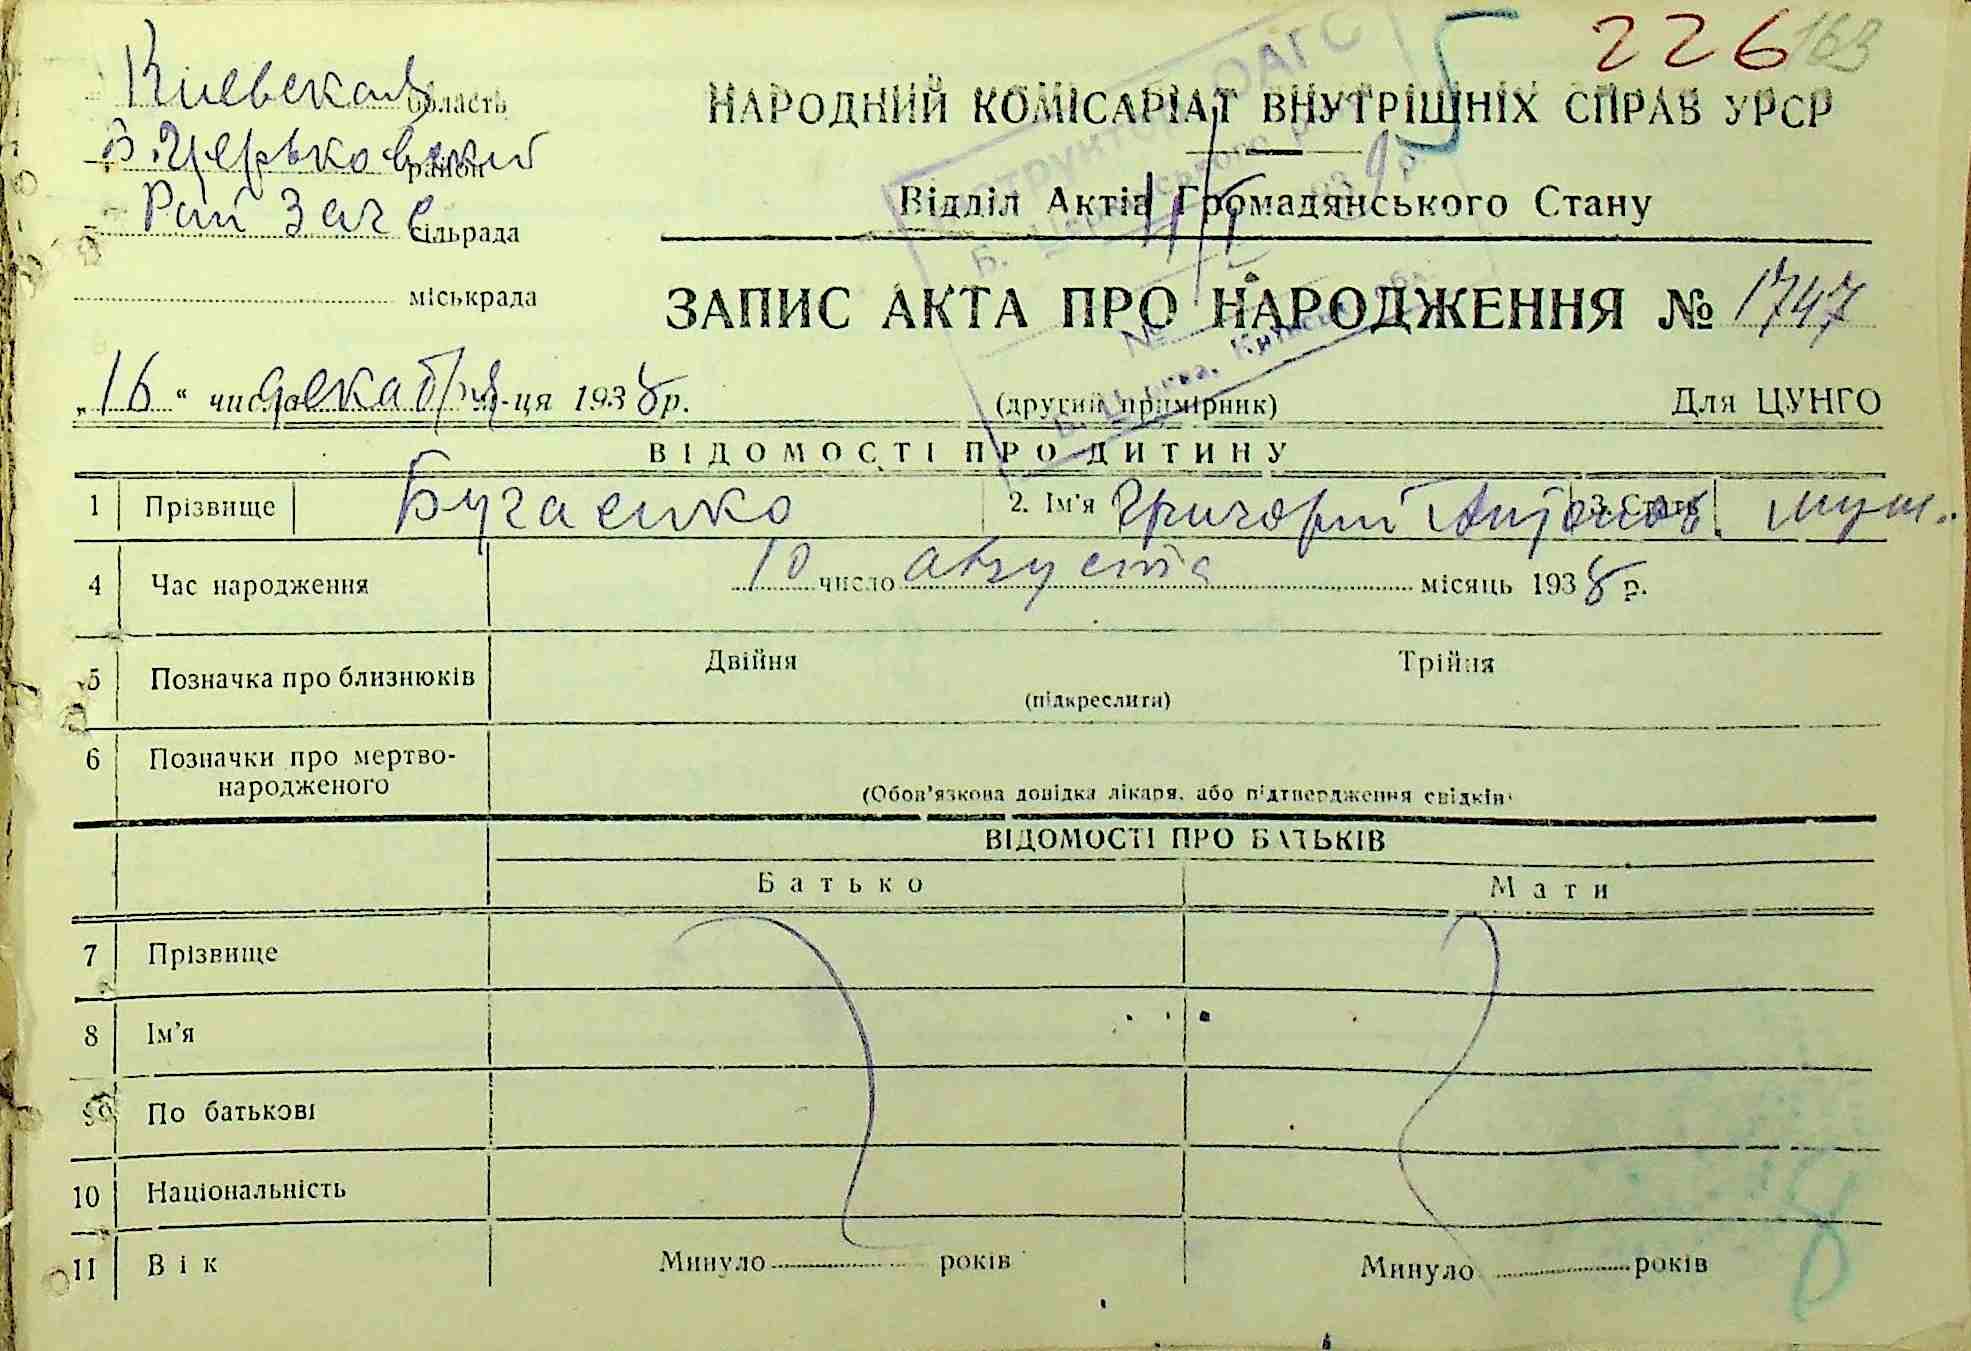 226 163
Киевская область
НАРОДНИЙ КОМІСАРІАТ ВНУТРІШНІХ СПРАВ УРСР
Б. Церковский район
Відділ Актів Громадянського Стану
Рай Загс сільрада
міськрада
ЗАПИС АКТА ПРО НАРОДЖЕННЯ № 1747
„16“ числа декабря м-ця 1938 р.
(другий примірник)
Для ЦУНГО
ВІДОМОСТІ ПРО ДИТИНУ
1 Прізвище Бугаенко 2. Ім'я Григорий Антонов. 3. Стать муж.
4 Час народження 10 число августа місяць 1938 р.
5 Позначка про близнюків Двійня Трійня
(підкреслити)
6 Позначки про мертво-
народженого
(Обов'язкова довідка лікаря, або підтвердження свідків)
ВІДОМОСТІ ПРО БАТЬКІВ
Батько Мати
7 Прізвище
8 Ім'я
9 По батькові
10 Національність
11 Вік Минуло років Минуло років